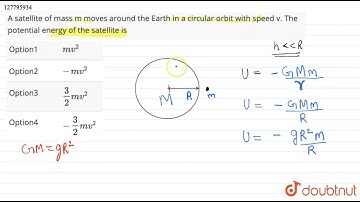 127795934
A satellite of mass m moves around the Earth in a circular orbit with speed v. The
potential energy of the satellite is
Option1 mv²
Option2 -mv²
Option3 3/2 mv²
Option4 -3/2 mv²
GM=gR²
M
R
m
h<<R
U = -GMm/r
U = -GMm/R
U = -gR²m/R
doubtnut